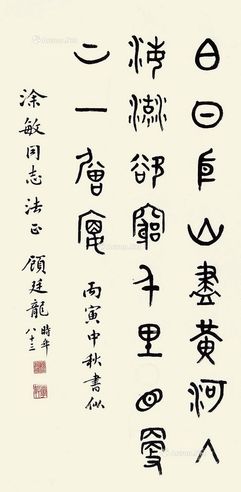 白日依山盡黃河入
海流欲窮千里目更
上一層樓 丙寅中秋書似
涂敏同志法正 顧廷龍時年八十三